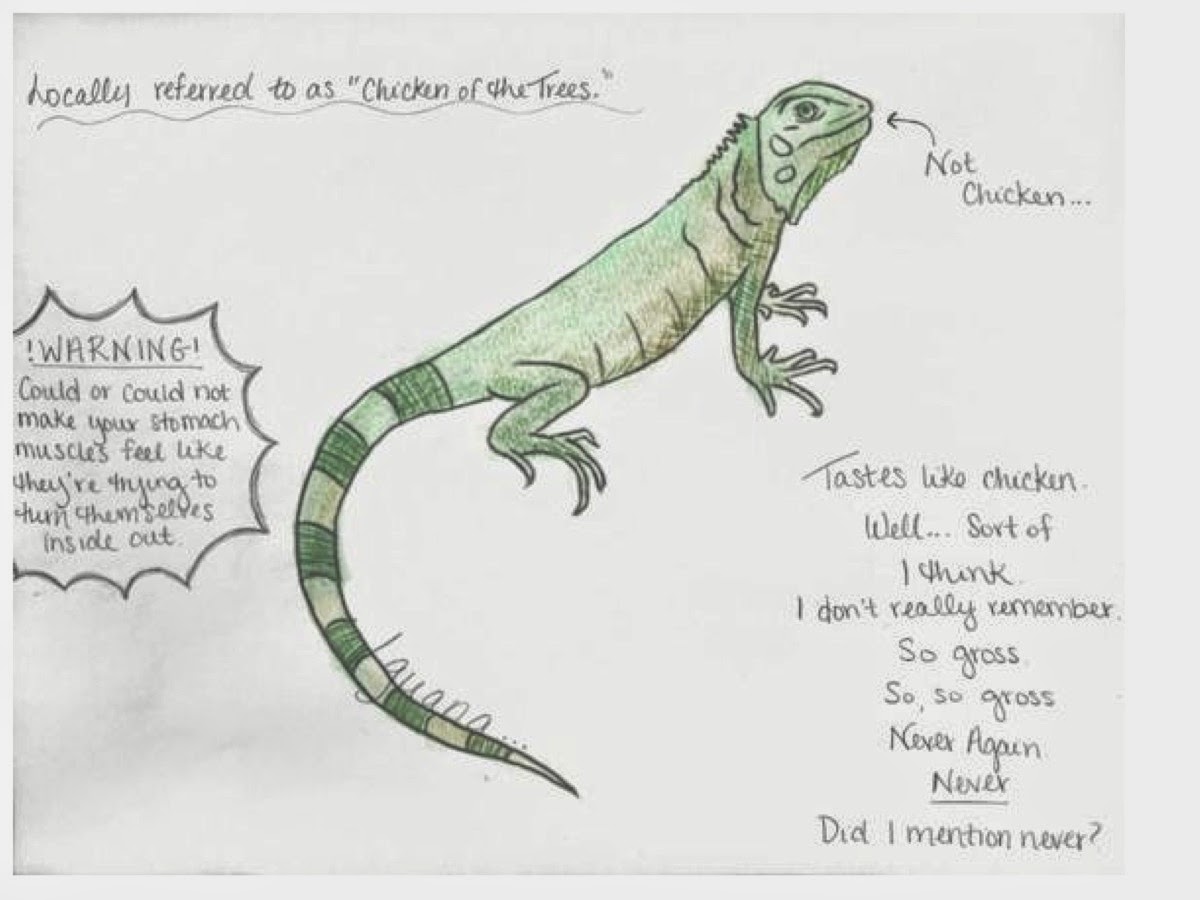 Locally referred to as "Chicken of the Trees."
Not
Chicken...
!WARNING!
Could or could not
make your stomach
muscles feel like
they're trying to
turn themselves
inside out.
Iguana...
Tastes like chicken.
Well... Sort of
I think.
I don't really remember.
So gross.
So, so gross
Never Again
Never
Did I mention never?